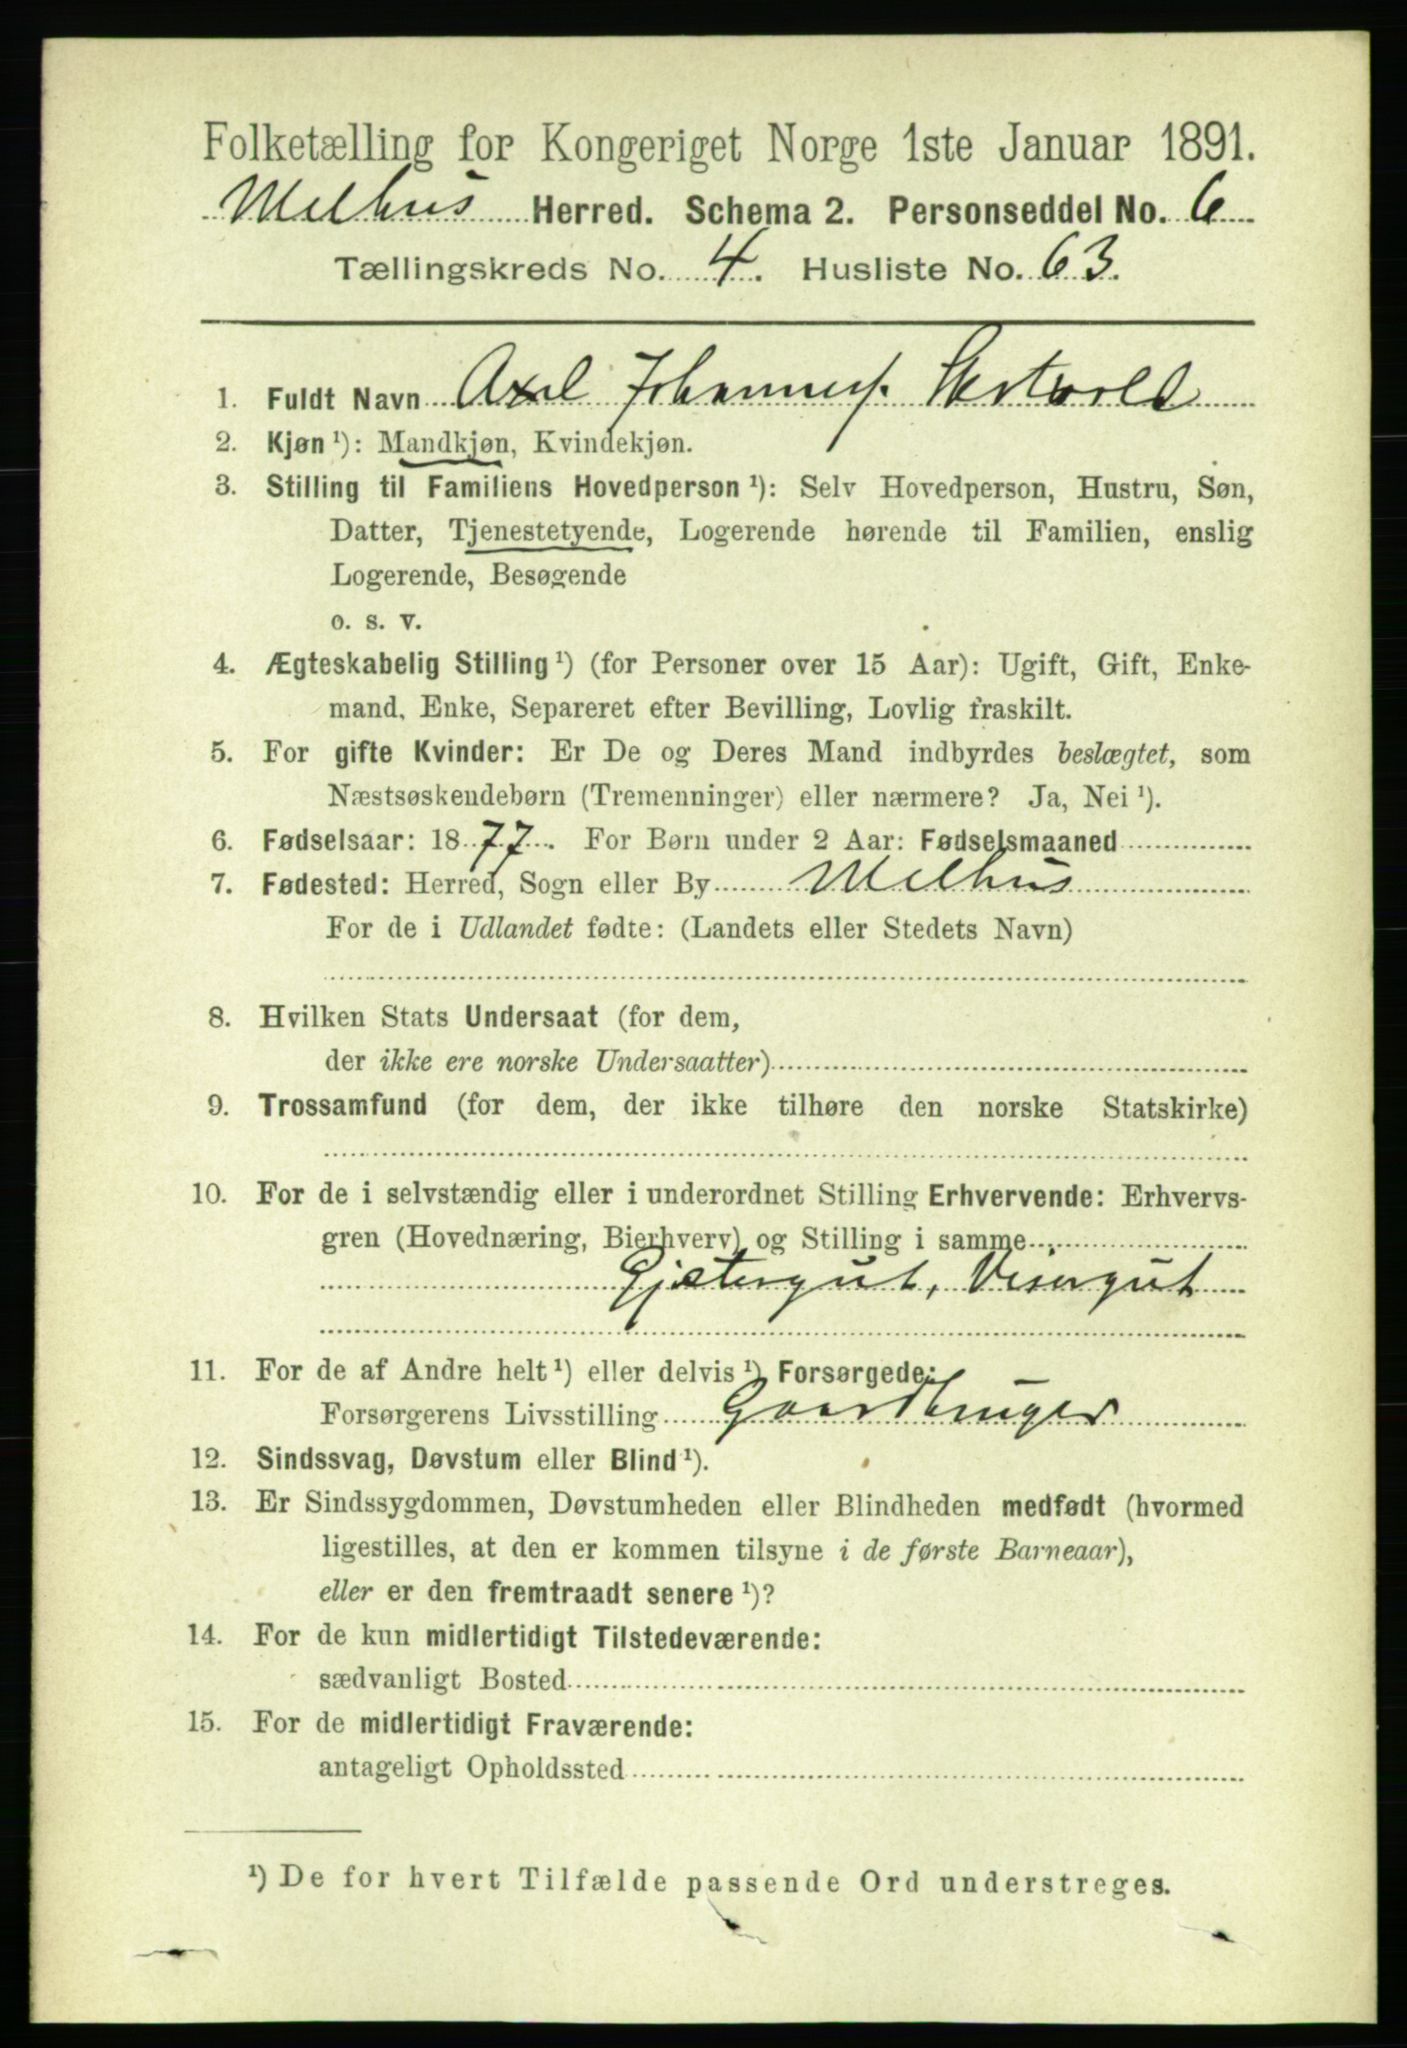 Folketælling for Kongeriget Norge 1ste Januar 1891.
Melhus Herred. Schema 2. Personseddel No. 6
Tællingskreds No. 4. Husliste No. 63.
1. Fuldt Navn Axel Johannes.
2. Kjøn ¹): Mandkjøn, Kvindekjøn.
3. Stilling til Familiens Hovedperson ¹): Selv Hovedperson, Hustru, Søn,
Datter, Tjenestetyende, Logerende hørende til Familien, enslig
Logerende, Besøgende
o. s. v.
4. Ægteskabelig Stilling ¹) (for Personer over 15 Aar): Ugift, Gift, Enke-
mand, Enke, Separeret efter Bevilling, Lovlig fraskilt.
5. For gifte Kvinder: Er De og Deres Mand indbyrdes beslægtet, som
Næstsøskendebørn (Tremenninger) eller nærmere? Ja, Nei ¹).
6. Fødselsaar: 1877. For Børn under 2 Aar: Fødselsmaaned
7. Fødested: Herred, Sogn eller By Melhus
For de i Udlandet fødte: (Landets eller Stedets Navn)
8. Hvilken Stats Undersaat (for dem,
der ikke ere norske Undersaatter)
9. Trossamfund (for dem, der ikke tilhøre den norske Statskirke)
10. For de i selvstændig eller i underordnet Stilling Erhvervende: Erhvervs-
gren (Hovednæring, Bierhverv) og Stilling i samme
Gjætergut, Visergut
11. For de af Andre helt ¹) eller delvis ¹) Forsørgede:
Forsørgerens Livsstilling Gaardbruger
12. Sindssvag, Døvstum eller Blind ¹).
13. Er Sindssygdommen, Døvstumheden eller Blindheden medfødt (hvormed
ligestilles, at den er kommen tilsyne i de første Barneaar),
eller er den fremtraadt senere ¹)?
14. For de kun midlertidigt Tilstedeværende:
sædvanligt Bosted
15. For de midlertidigt Fraværende:
antageligt Opholdssted
¹) De for hvert Tilfælde passende Ord understreges.